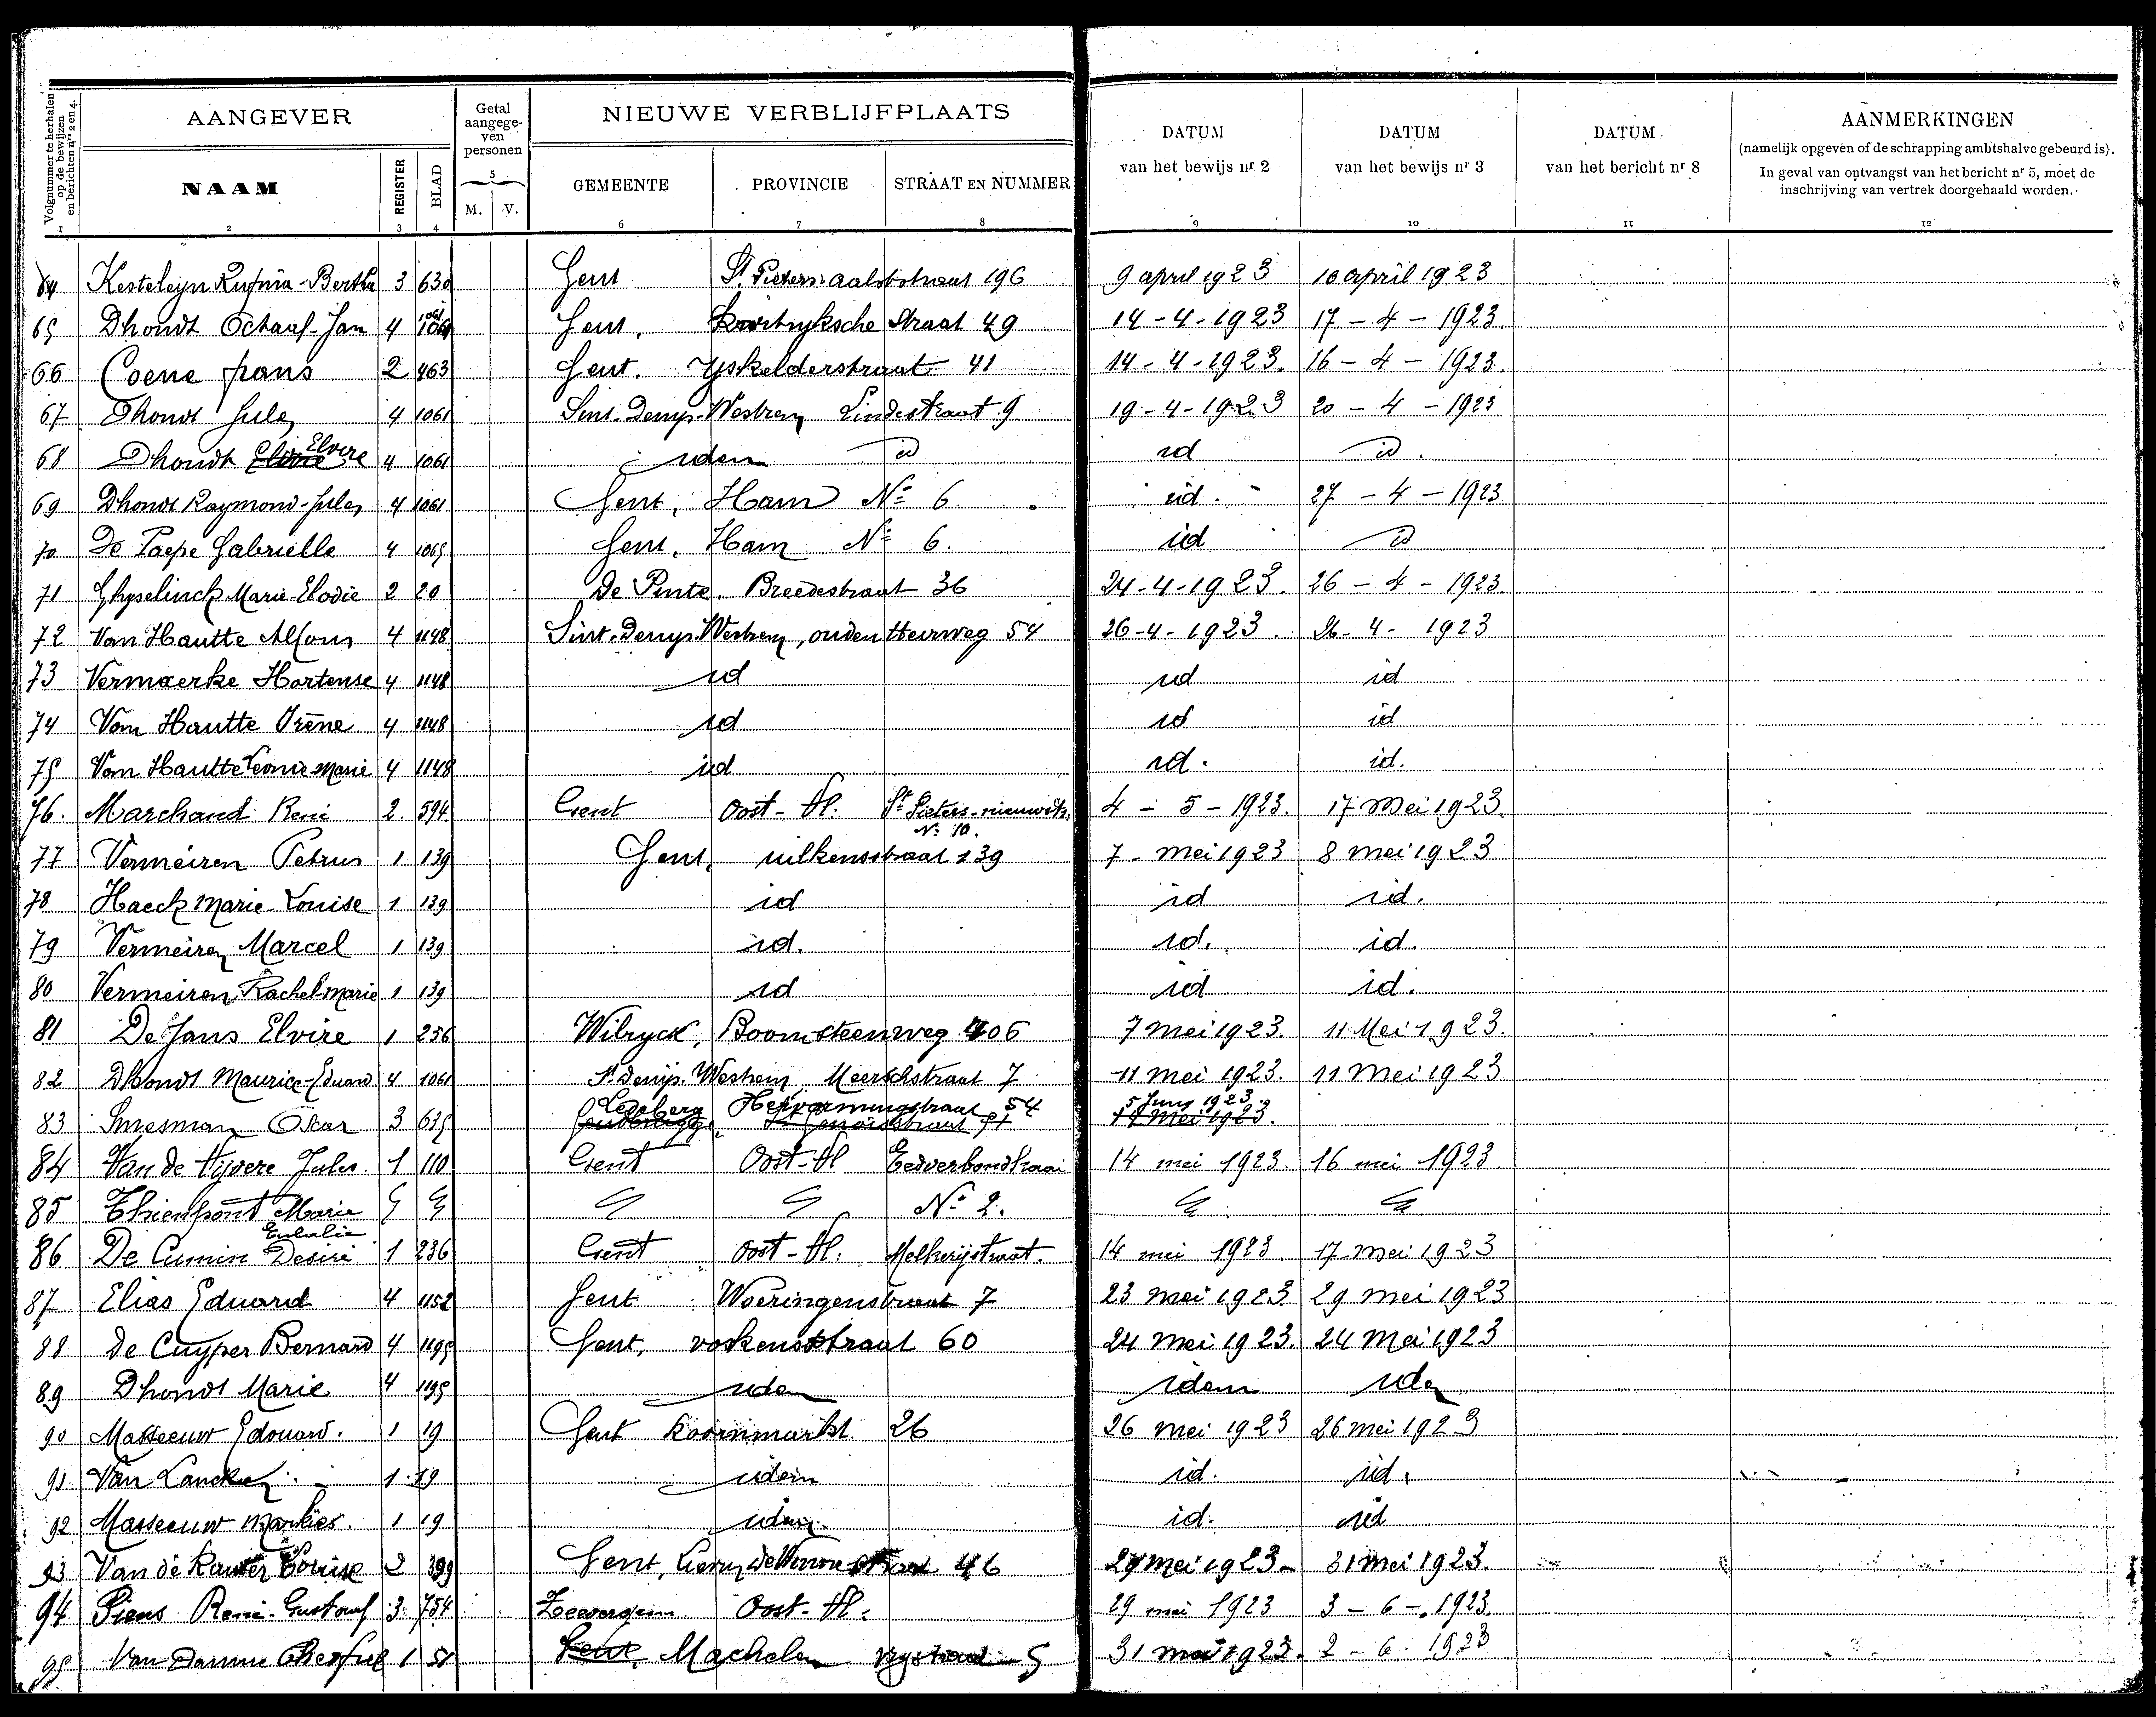 Volgnummer te herhalen op de bewijzen en berichten nrs 2 en 4.
AANGEVER
Getal aangegeven personen
NIEUWE VERBLIJFPLAATS
DATUM van het bewijs nr 2
DATUM van het bewijs nr 3
DATUM van het bericht nr 8
AANMERKINGEN
(namelijk opgeven of de schrapping ambtshalve gebeurd is).
In geval van ontvangst van het bericht nr 5, moet de
inschrijving van vertrek doorgehaald worden.
NAAM REGISTER BLAD 5 M. V. GEMEENTE PROVINCIE STRAAT EN NUMMER
1 2 3 4 6 7 8 9 10 11 12
64 Kesteleyn Rufina-Bertha 3 630 Gent St Pieters aalststraat 196 9 april 1923 10 april 1923
65 Dhondt Octaaf-Jan 4 1061 Gent, Kortryksche Straat 49 14-4-1923 17-4-1923.
66 Coene frans 2 463 Gent. Yskelderstraat 41 14-4-1923. 16-4-1923.
67 Dhondt Jules 4 1061 Sint-Denys-Westrem Lindestraat 9 19-4-1923 20-4-1923
68 Dhondt Elvire 4 1061 idem id id id.
69 Dhondt Raymond-Jules 4 1061 Gent, Ham No 6. id. 27-4-1923
70 De Paepe Gabrielle 4 1065 Gent, Ham No 6. id id
71 Ghyselinck Marie-Elodie 2 20 De Pinte. Breedestraat 36 24-4-1923. 26-4-1923.
72 Van Hautte Alfons 4 1148 Sint-Denys-Westrem, ouden Heirweg 54 26-4-1923. 26-4-1923
73 Vermaerke Hortense 4 1148 id id id
74 Van Hautte Irène 4 1148 id id id
75 Van Hautte Leonie Marie 4 1148 id id. id.
76. Marchand René 2. 594 Gent Oost-Vl. St Pieters-nieuwstr. No 10. 4-5-1923. 17 Mei 1923.
77 Vermeiren Petrus 1 139 Gent, wilkensstraat 139 7-mei 1923 8 mei 1923
78 Haeck Marie-Louise 1 139 id id id.
79 Vermeiren Marcel 1 139 id. id. id.
80 Vermeiren Rachel-Marie 1 139 id id id.
81 De Jans Elvire 1 256 Wilryck, Boomsteenweg 406 7 mei 1923. 11 Mei 1923.
82 Dhondt Maurice-Eduard 4 1061 St. Denijs. Westrem Meerschstraat 7. 11 mei 1923. 11 Mei 1923
83 Smesman Oscar 3 635 Ledeberg Hervormingstraat 54 5 Juny 1923
84 Van de Vijvere Jules. 1 110 Gent Oost-Vl Eedverbondkaai 14 mei 1923. 16 mei 1923
85 Thienpont Marie Eulalie No 2.
86 De Cumin Desiré 1 236 Gent Oost-Vl. Melkerijstraat. 14 mei 1923 17 mei 1923
87 Elias Eduard 4 1152 Gent Woeringenstraat 7 23 mei 1923 29 mei 1923
88 De Cuyper Bernard 4 1195 Gent, voskensstraat 60 24 mei 1923. 24 Mei 1923
89 Dhondt Marie 4 1195 idem idem idem
90 Masseeuw Edouard. 1 19 Gent Koornmarkt 26 26 mei 1923 26 mei 1923
91. Van Lancker 1 19 idem id. id.
92 Masseeuw 1 19 idem id. id
93 Van de Louise 2 399 Gent, 46 29 mei 1923- 31 mei 1923.
94 Piens René-Gustaaf 3. 754 Zevergem Oost-Vl. 29 mei 1923 3-6-1923.
95 Van Damme 1 51 Gent Machelen 5 31 mei 1923. 2-6-1923